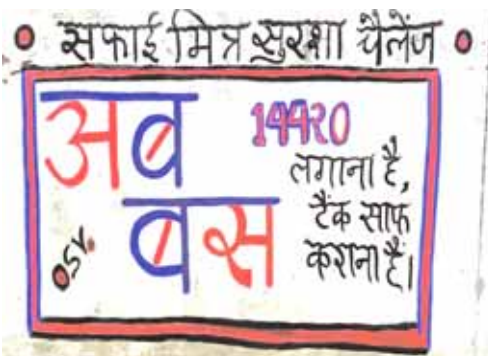 सफाई मित्र सुरक्षा चैलेंज
अब
बस
14420
लगाना है,
टैंक साफ
कराना है।